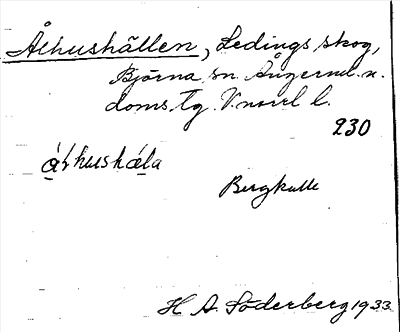 Ålhushällen, Ledings skog,
Björna sn. Ångerml. n.
doms. tg. V.norrl l.
230
álhushäla
Bergkulle
H. A. Söderberg 1933